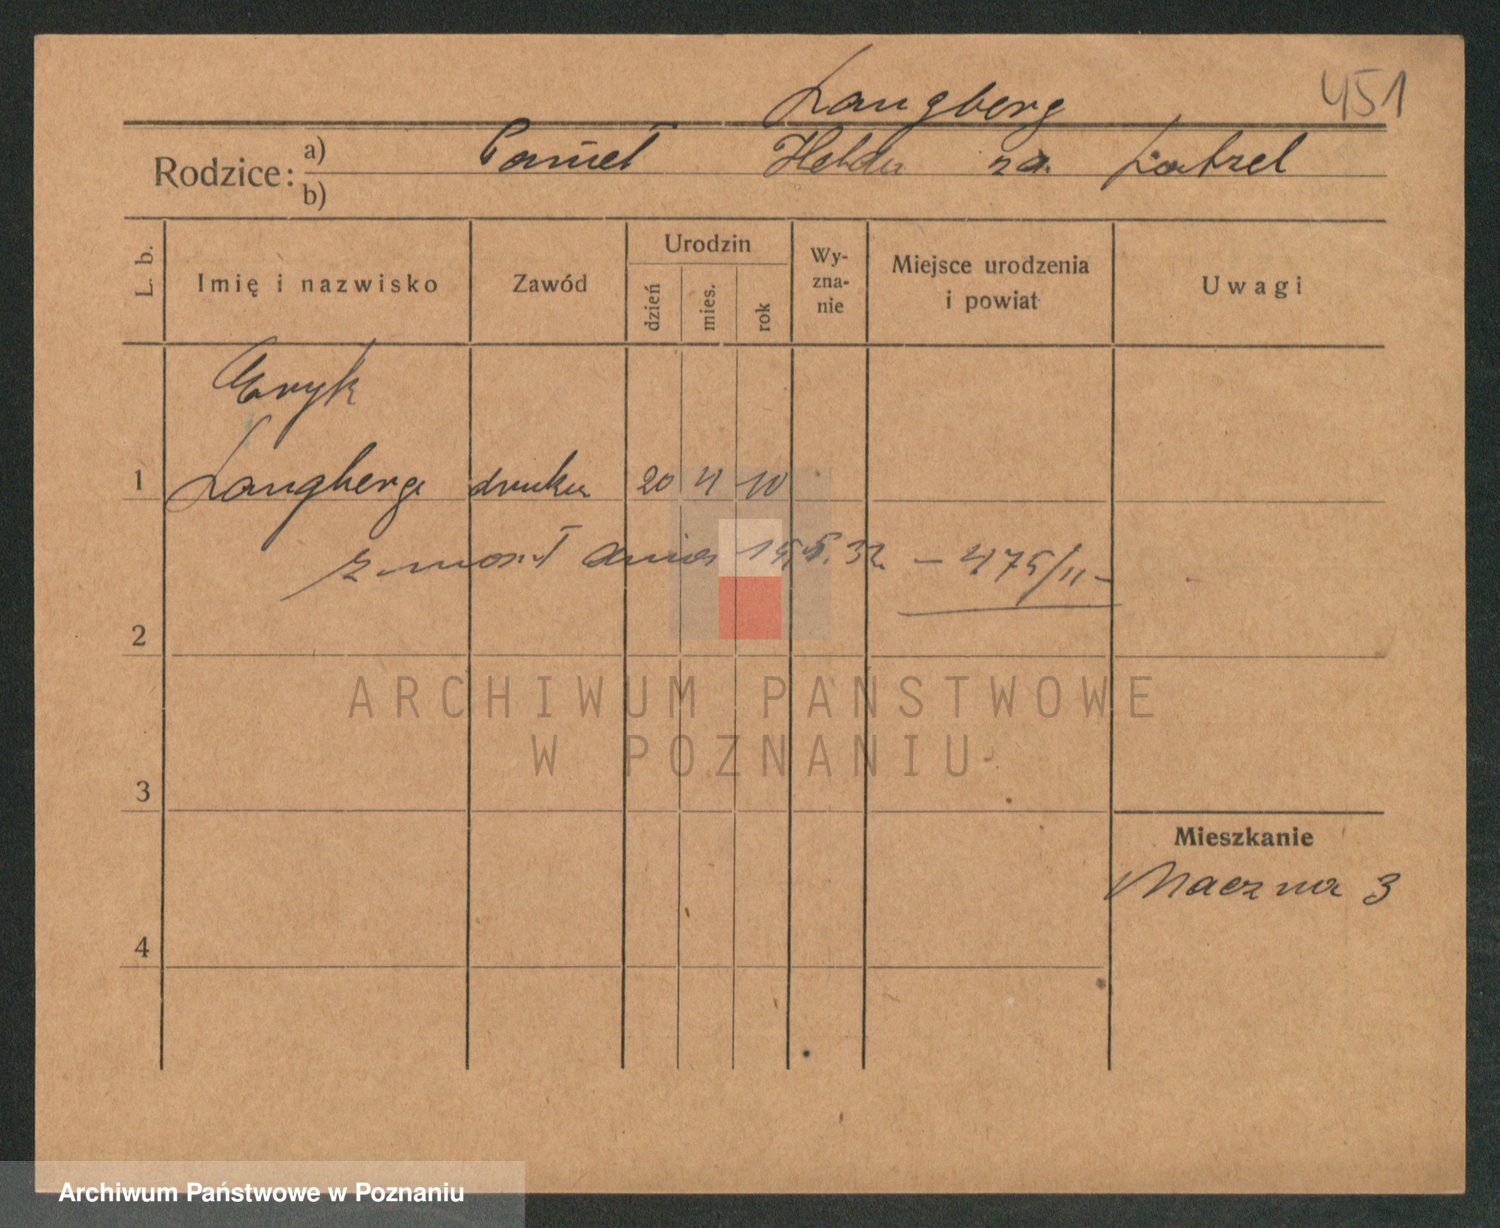 Langberg 451
Rodzice: a) Paweł Helda za. Latzel
b)
L. b. Imię i nazwisko Zawód Urodzin dzień mies. rok Wy-zna-nie Miejsce urodzenia i powiat Uwagi
Eryk
1 Langberg 20 4 10
zmarł dnia 19.5.32 – 475/II –
2
ARCHIWUM PAŃSTWOWE
W POZNANIU
3
Mieszkanie
Maczna 3
4
Archiwum Państwowe w Poznaniu